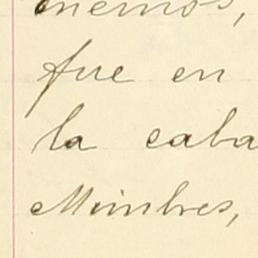 enemos,
fue en
la caba
Mimbres,